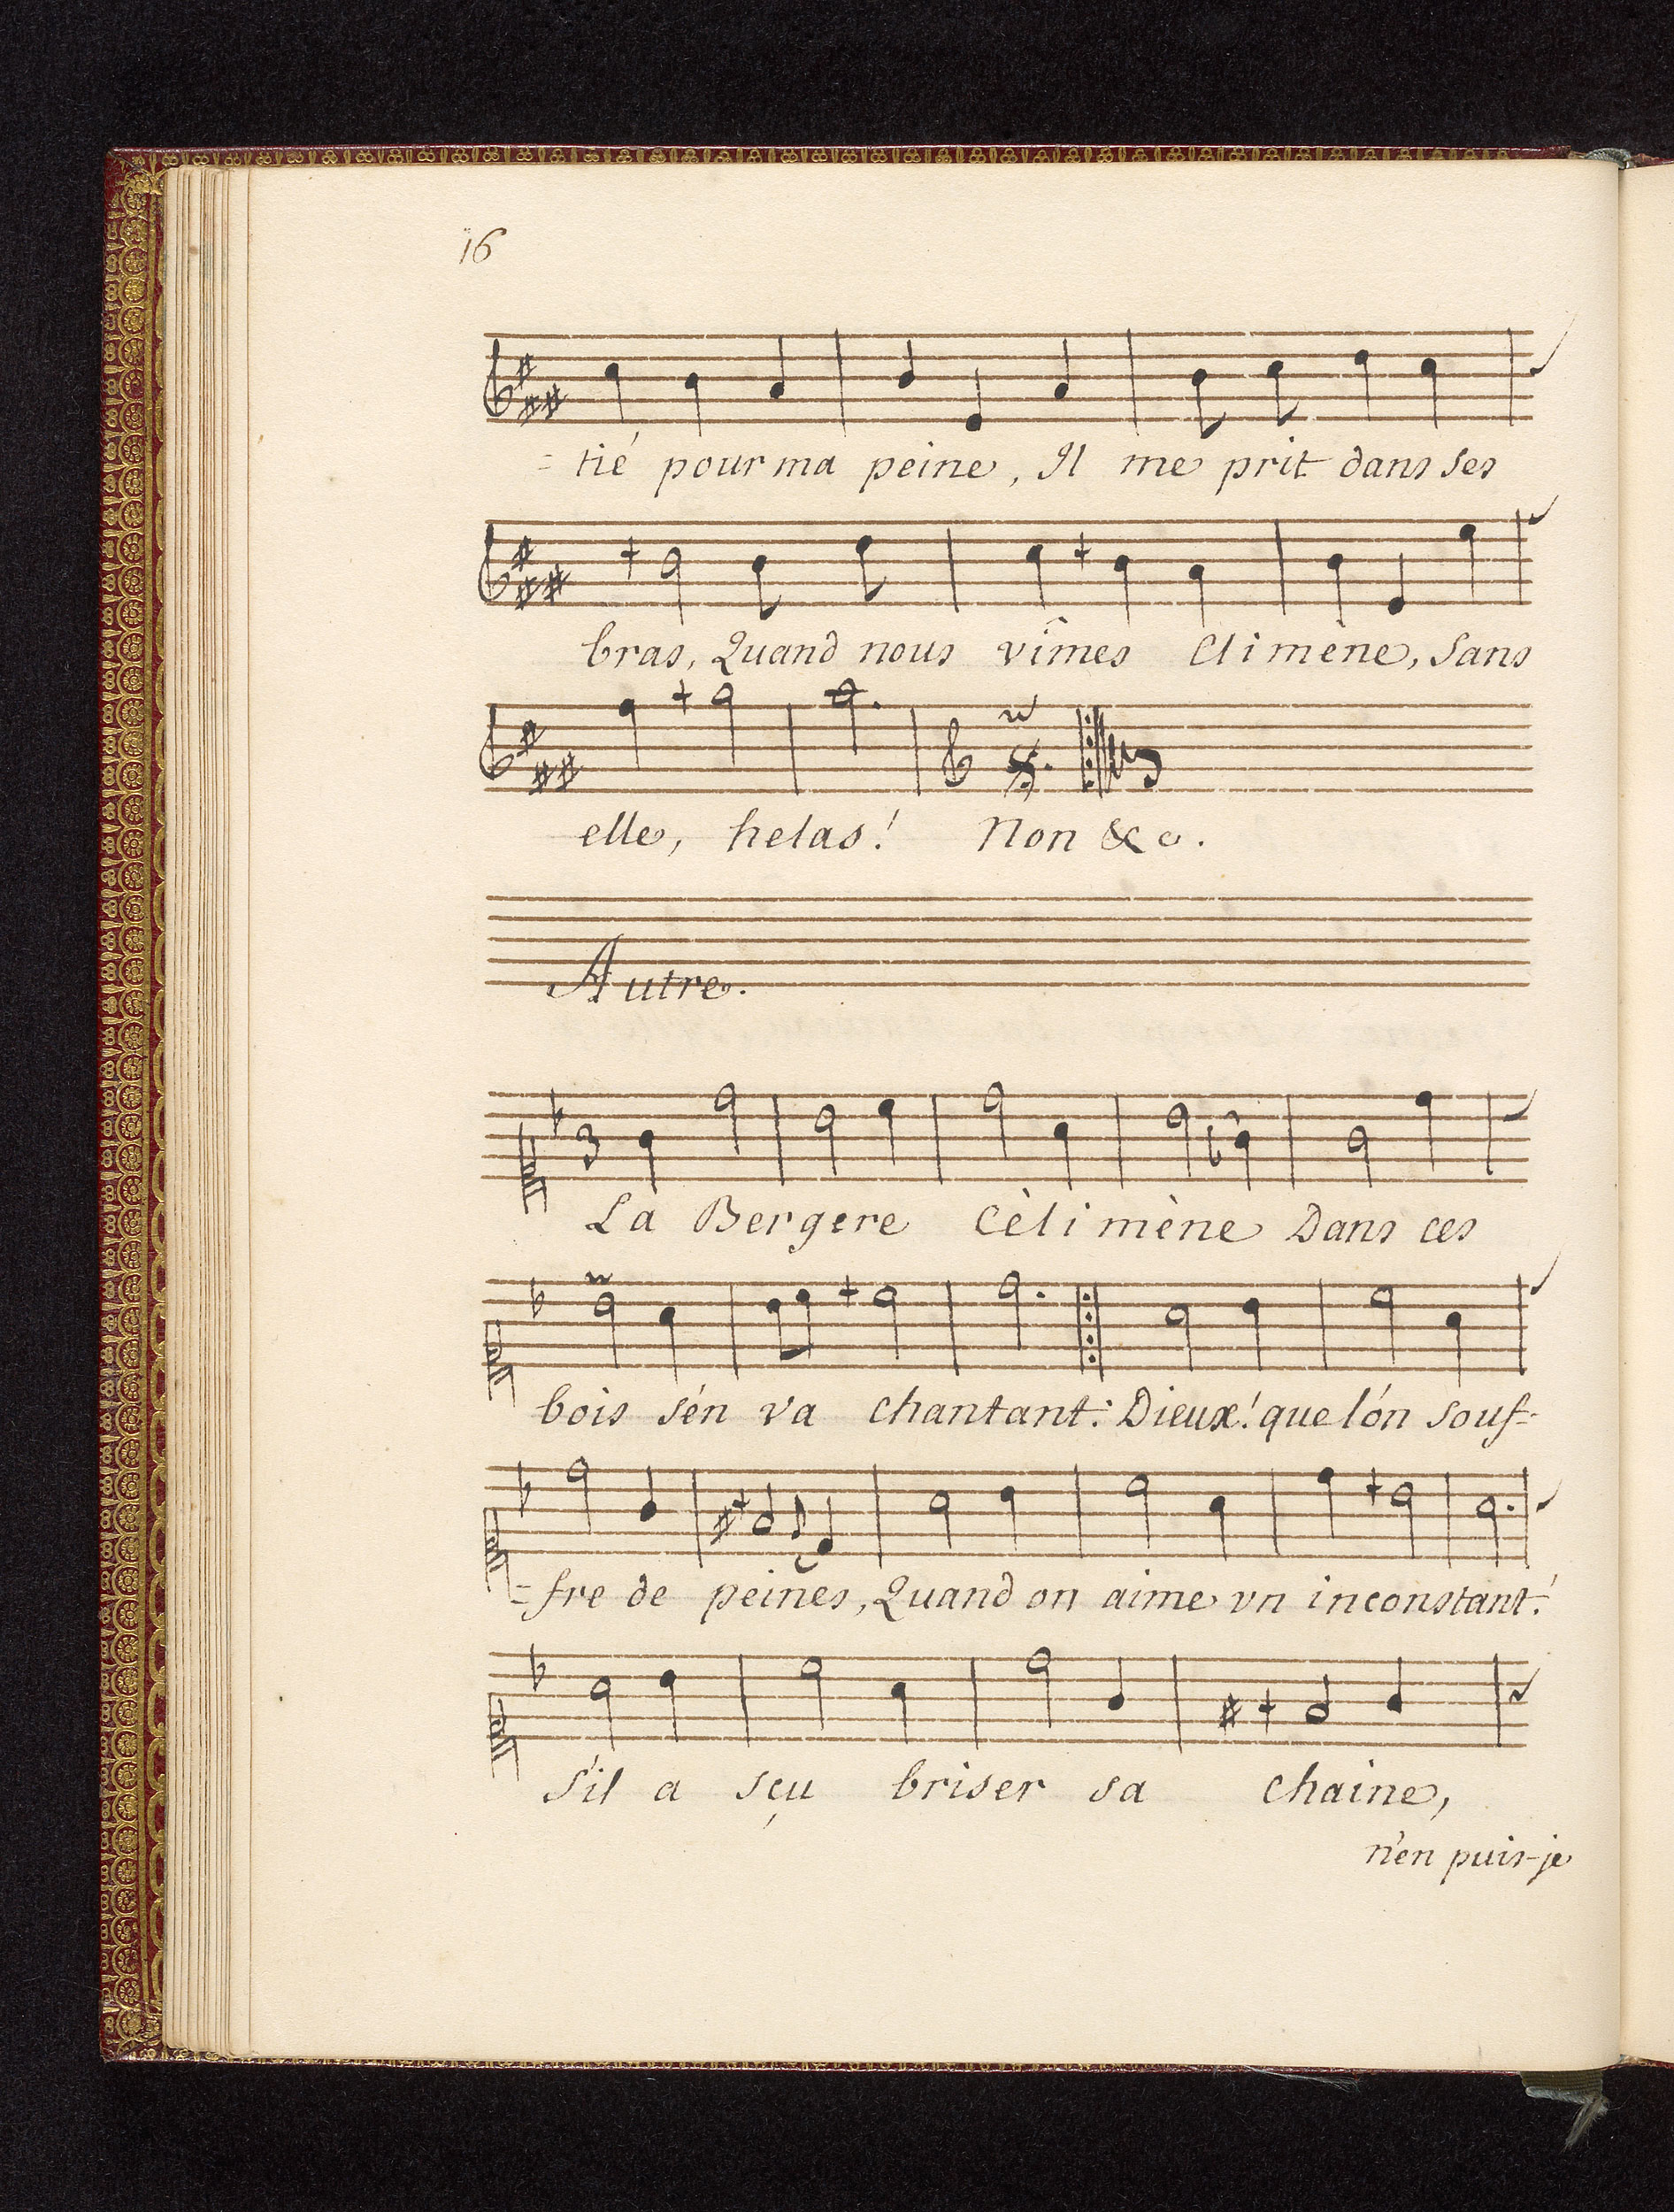 16
=tié pour ma peine, Il me prit dans ses
bras, Quand nous vîmes Climène, Sans
elle, helas! Non &c.
Autre.
3
La Bergere Cèlimène Dans ces
bois s'én va chantant: Dieux! que l'ón souf=
=fre de peines, Quand on aime vn inconstant!
S'il a sçu briser sa chaine,
n'en puis-je